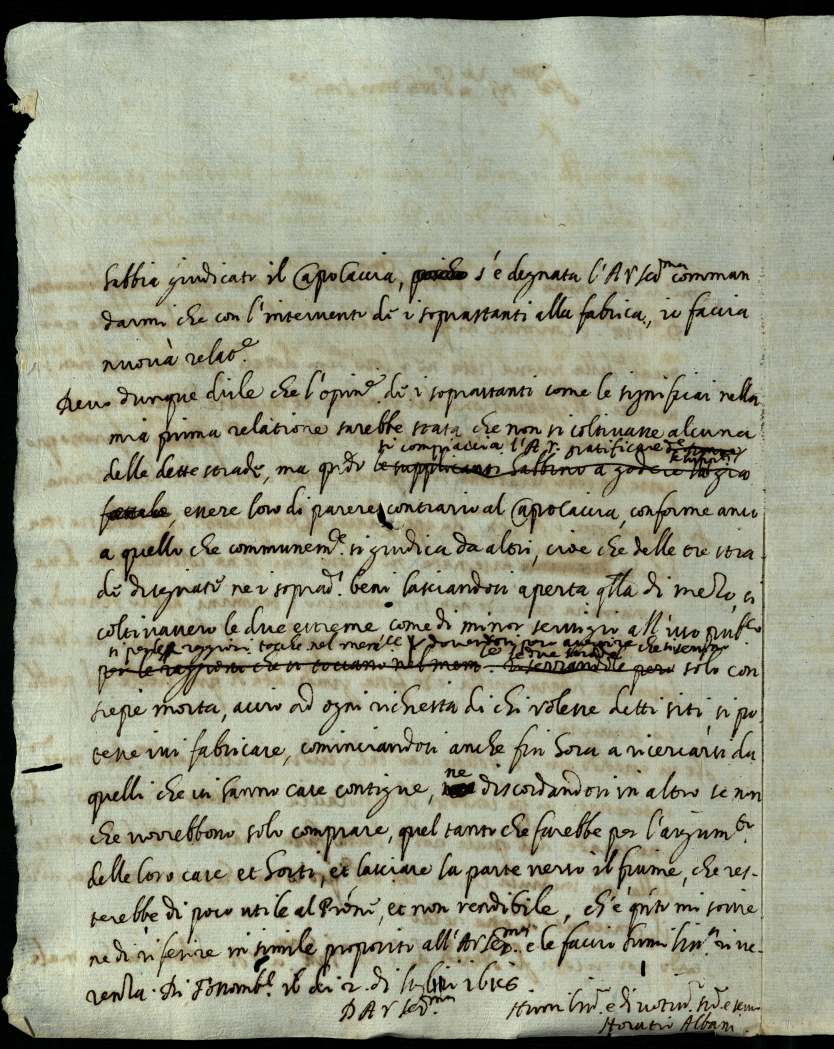 habbia giudicato il Capocaccia, s'è degnata l'A V Ser.ma comman
darmi che con l'intervento de i soprastanti alla fabrica, io faccia
nuova relat.e
Devo dunque dirle che l'opin.e de i soprastanti come le significai nella
mia prima relatione sarebbe stata che non si coltivasse alcuna
si compiaccia l'A V. gratificare
delle dette strade, ma q.do le supplicanti habbino a godere
essere loro di parere contrario al Capocaccia, conforme anco
a quello che communem.te si giudica da altri, cioè che delle tre stra
de disegnate ne i soprad.i beni lasciandosi aperta q.lla di mezo, si
coltivassero le due estreme come di minor servigio all'uso pub.co
si per le raggioni tocche nel mem.le dovendosi però avvertire che si serrino
per le raggioni che si toccano nel mem.le le due strade serrandole però solo con
siepe morta, acciò ad ogni richiesta di chi volesse detti siti, si po
tesse ivi fabricare, cominciandosi anche fin hora a ricercarsi da
quelli che ivi hanno case contigue, ne discordandosi in altro se non
che vorrebbono solo comprare, quel tanto che farebbe per l'augum.to
delle loro case et horti, et lasciare la parte verso il fiume, che res-
terebbe di poco utile al Prône, et non vendibile, ch'è q.to mi sovie
ne di riferire in simile proposito all'A V Ser.ma e le faccio humiliss.a rive
renza. Di Fossomb.e il dì 2. di luglio 1616
D A V Ser.ma
Humiliss.o e divotiss.o ser.e e serv.
Horatio Albani